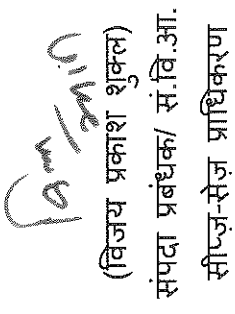 (विजय प्रकाश शुक्ल)
संपदा प्रबंधक/ सं.वि.आ.
सीप्ज़-सेज़ प्राधिकरण